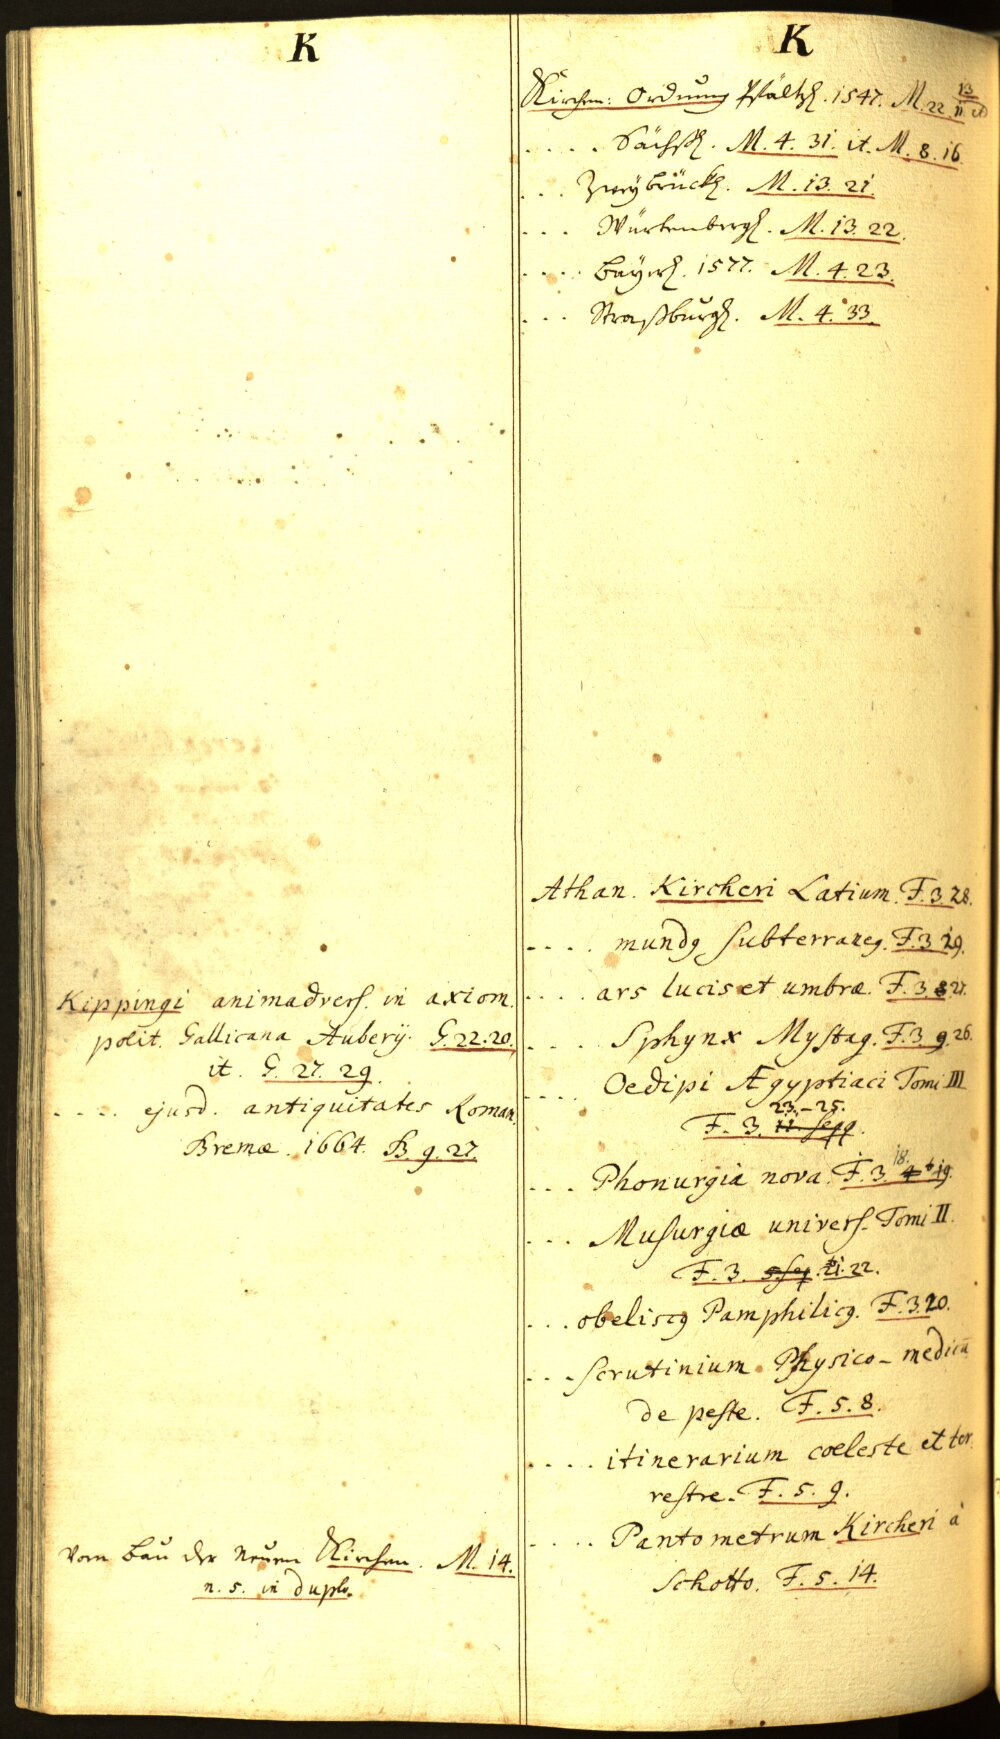 K
Kippingi animadvers. in axiom.
polit. Gallicana Auberij. G. 22. 20.
it. G. 27. 29.
.... ejusd. antiquitates Roman.
Bremæ. 1664. B. 9. 27.
Vom Bau der Neuen Kirchen. M. 14.
n. 5. in duplo.
K
Kirchen-Ordnung Pfältz. 1547. M. 22.
.... Sächß. M. 4. 31. it. M. 8. 16.
... Zweybrück. M. 13. 21.
... Würtenberg. M. 13. 22.
.... Bayer. 1577. M. 4. 23.
... Straßburg. M. 4. 33.
Athan. Kircheri Latium. F. 3. 28.
.... mundg subterraneg. F. 3. 29.
.... ars lucis et umbræ. F. 3. 27.
.... Sphynx Mystag. F. 3. 26.
.... Oedipi Ægyptiaci Tomi III
23.-25.
F. 3. 11. seqq.
... Phonurgia nova. F. 3. 18. 19.
... Musurgiæ univers. Tomi II.
F. 3. 21. 22.
... obeliscg Pamphilicg. F. 3. 20.
... Scrutinium Physico-medicū
de peste. F. 5. 8.
.... itinerarium coeleste et ter
restre. F. 5. 9.
.... Pantometrum Kircheri à
Schotto. F. 5. 14.